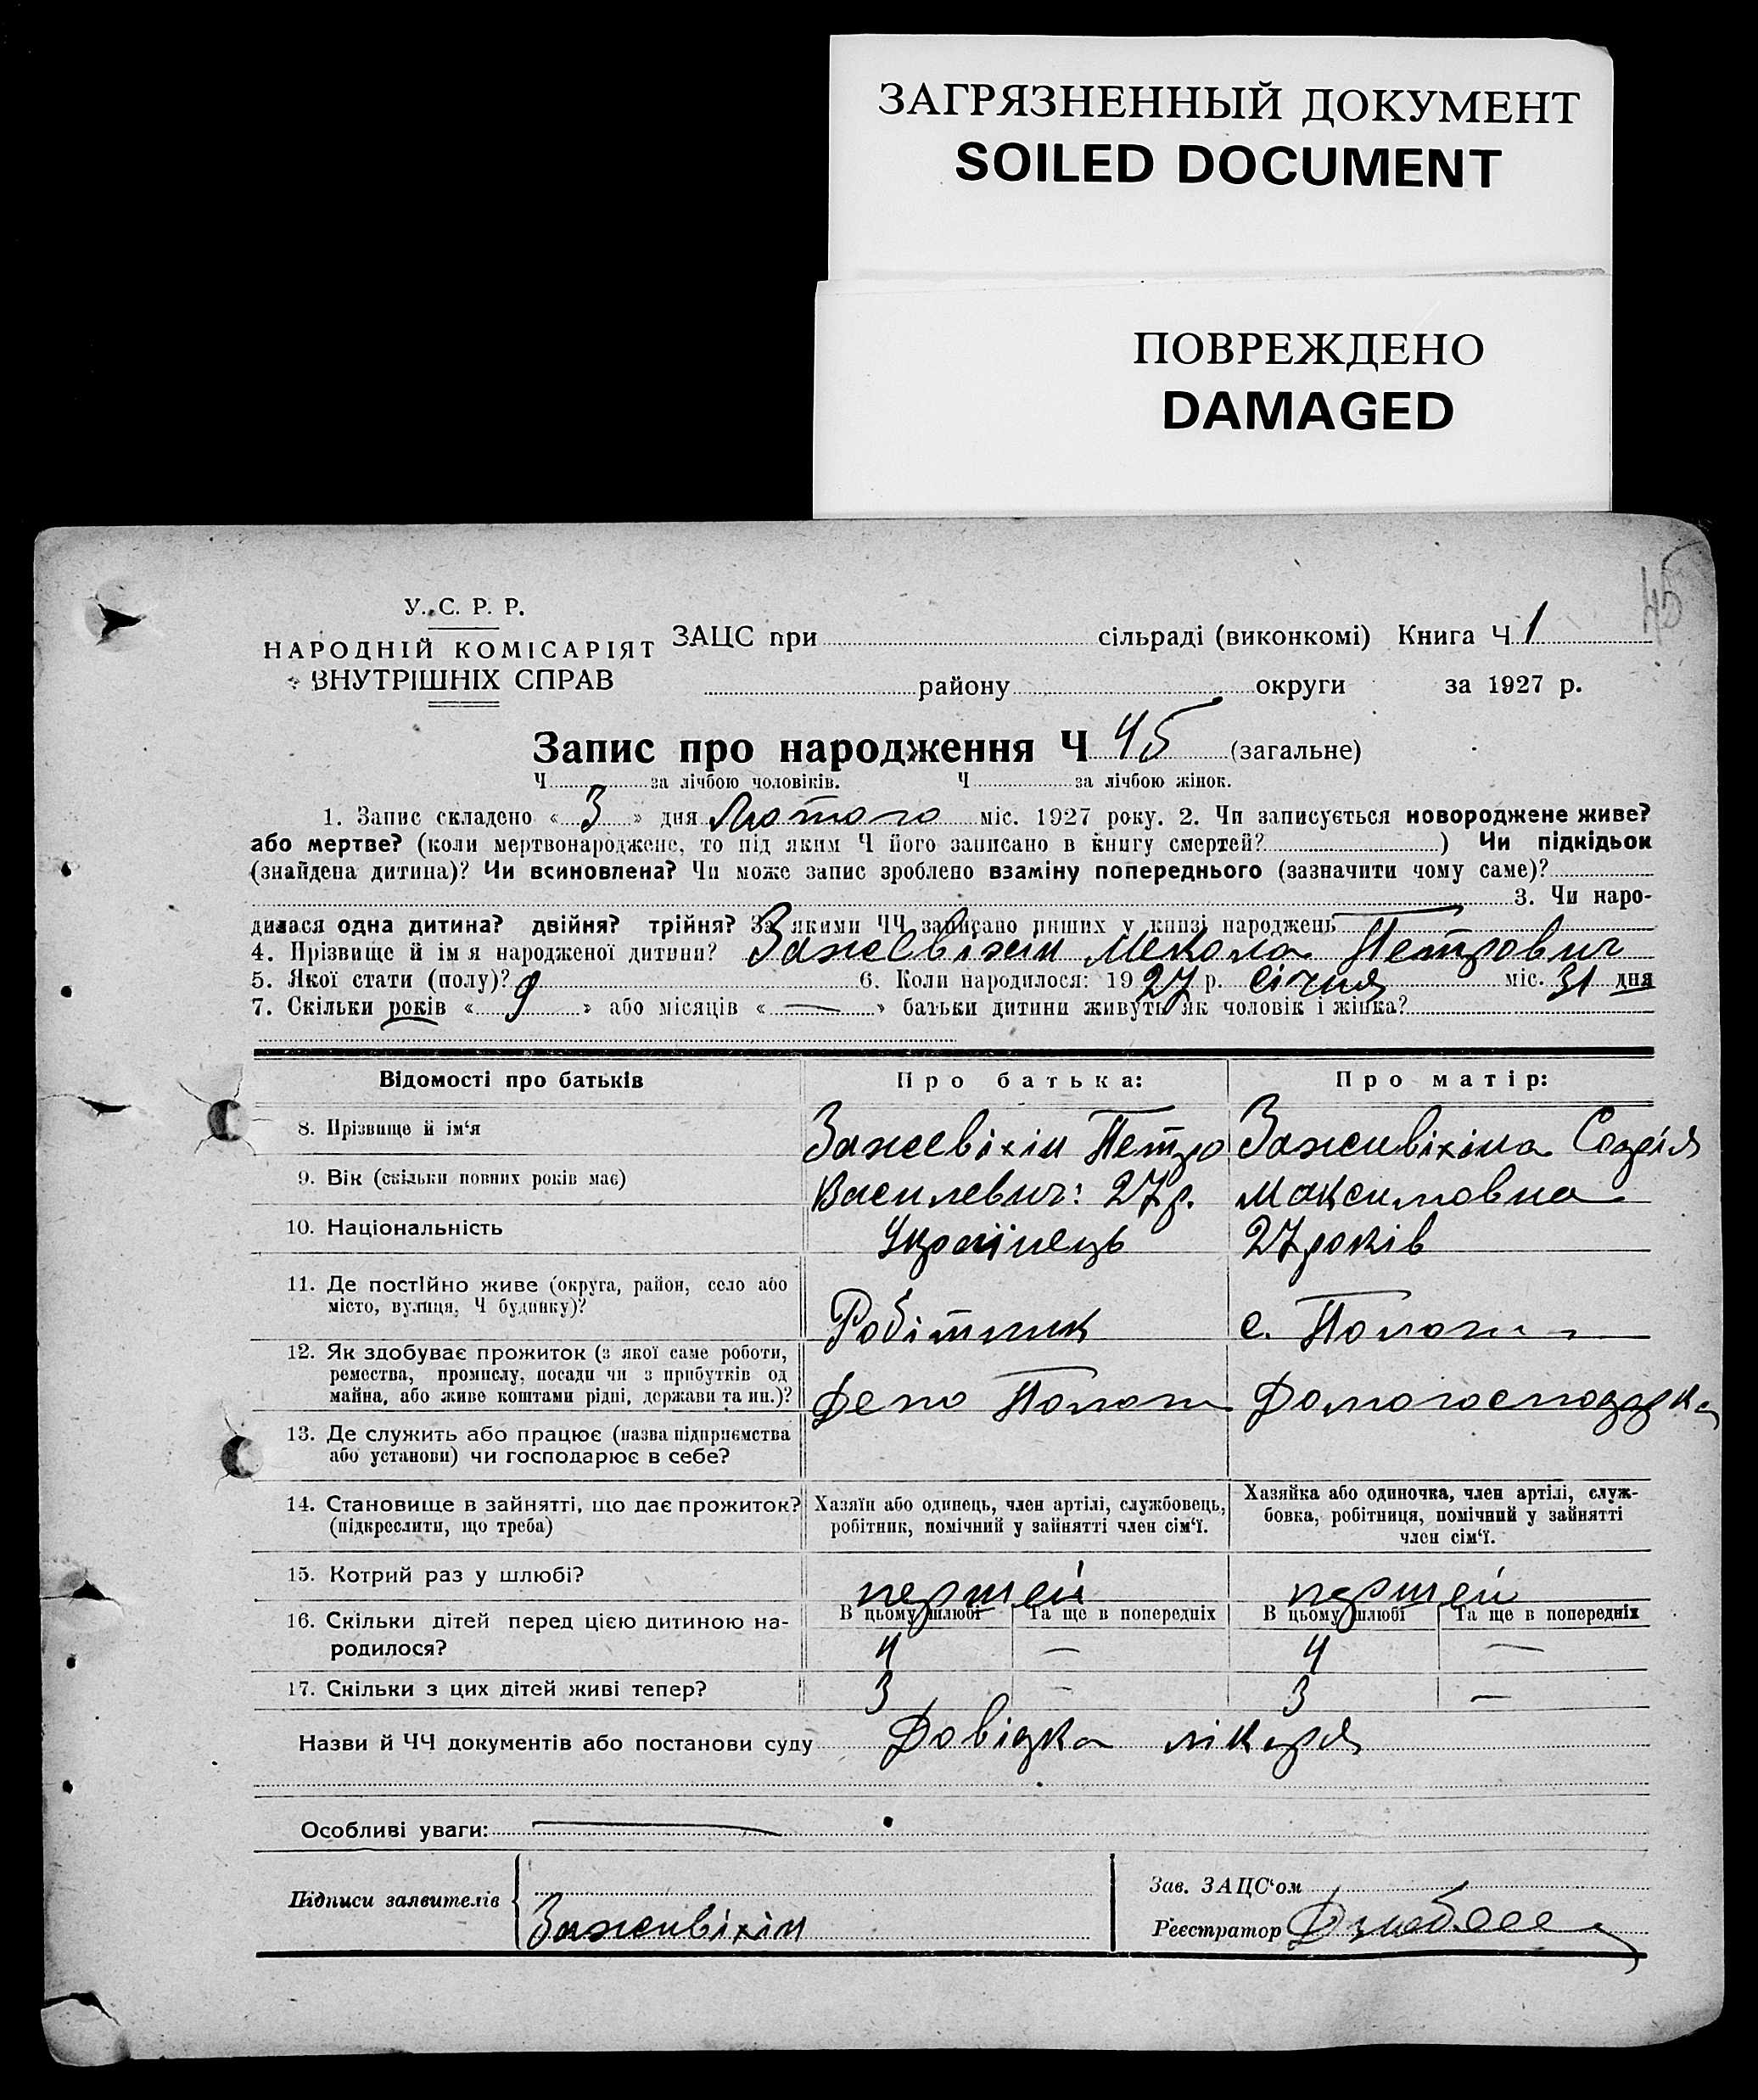 ЗАГРЯЗНЕННЫЙ ДОКУМЕНТ
SOILED DOCUMENT
ПОВРЕЖДЕНО
DAMAGED
45
У. С. Р. Р.
НАРОДНІЙ КОМІСАРІЯТ
ВНУТРІШНІХ СПРАВ
ЗАЦС при сільраді (виконкомі) Книга Ч 1
району округи за 1927 р.
Запис про народження Ч 45 (загальне)
Ч за лічбою чоловіків. Ч за лічбою жінок.
1. Запис складено « 3 » дня Лютого міс. 1927 року. 2. Чи записується новороджене живе?
або мертве? (коли мертвонароджене, то під яким Ч його записано в книгу смертей? ) Чи підкідьок
(знайдена дитина)? Чи всиновлена? Чи може запис зроблено взаміну попереднього (зазначити чому саме)?
3. Чи наро-
дилася одна дитина? двійня? трійня? За якими ЧЧ записано инших у книзі народжень
4. Прізвище й ім я народженої дитини? Зажевіхін Мекола Петрович
5. Якої стати (полу)? 6. Коли народилося: 1927 р. січня міс. 31 дня
7. Скільки років « 9 » або місяців « — » батьки дитини живуть як чоловік і жінка?
Відомості про батьків
Про батька:
Про матір:
8. Прізвище й ім‘я
Зажевіхін Петро
Заживіхіна Софія
9. Вік (скільки повних років має)
Василевич: 27 р.
Максимовна
10. Національність
Українець
27 років
11. Де постійно живе (округа, район, село або
місто, вулиця, Ч будинку)?
Робітник
с. Пологи
12. Як здобуває прожиток (з якої саме роботи,
ремества, промислу, посади чи з прибутків од
майна, або живе коштами рідні, держави та ин.)?
Депо Пологи
Домогосподарка
13. Де служить або працює (назва підприємства
або установи) чи господарює в себе?
14. Становище в зайнятті, що дає прожиток?
(підкреслити, що треба)
Хазяїн або одинець, член артілі, службовець,
робітник, помічний у зайнятті член сім‘ї.
Хазяйка або одиночка, член артілі, служ-
бовка, робітниця, помічний у зайнятті
член сім‘ї.
15. Котрий раз у шлюбі?
першей
першей
16. Скільки дітей перед цією дитиною на-
родилося?
В цьому шлюбі Та ще в попередніх
В цьому шлюбі Та ще в попередніх
4 —
4 —
17. Скільки з цих дітей живі тепер?
3 —
3 —
Назви й ЧЧ документів або постанови суду Довідка лікаря
Особливі уваги: —
Підписи заявителів
Заживіхін
Зав. ЗАЦС‘ом
Реєстратор